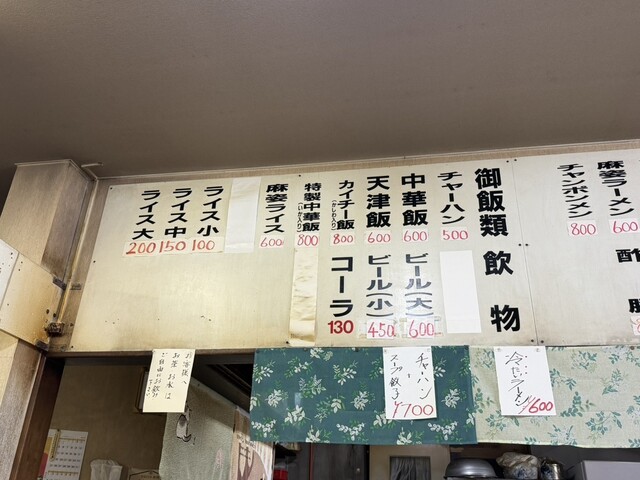 麻姿ラーメン
600
チャンポンメン
800
御飯類
飲物
チャーハン
500
中華飯
600
天津飯
600
カイチー飯
(かしわ入り)
800
特製中華飯
(いか入り)
800
麻姿ライス
600
ライス小
100
ライス中
150
ライス大
200
ビール(大)
600
ビール(小)
450
コーラ
130
お客様へ
お茶お水は
ご自由にお飲み
下さい
チャーハン
スープ餃子
¥700
冷しラーメン
¥600